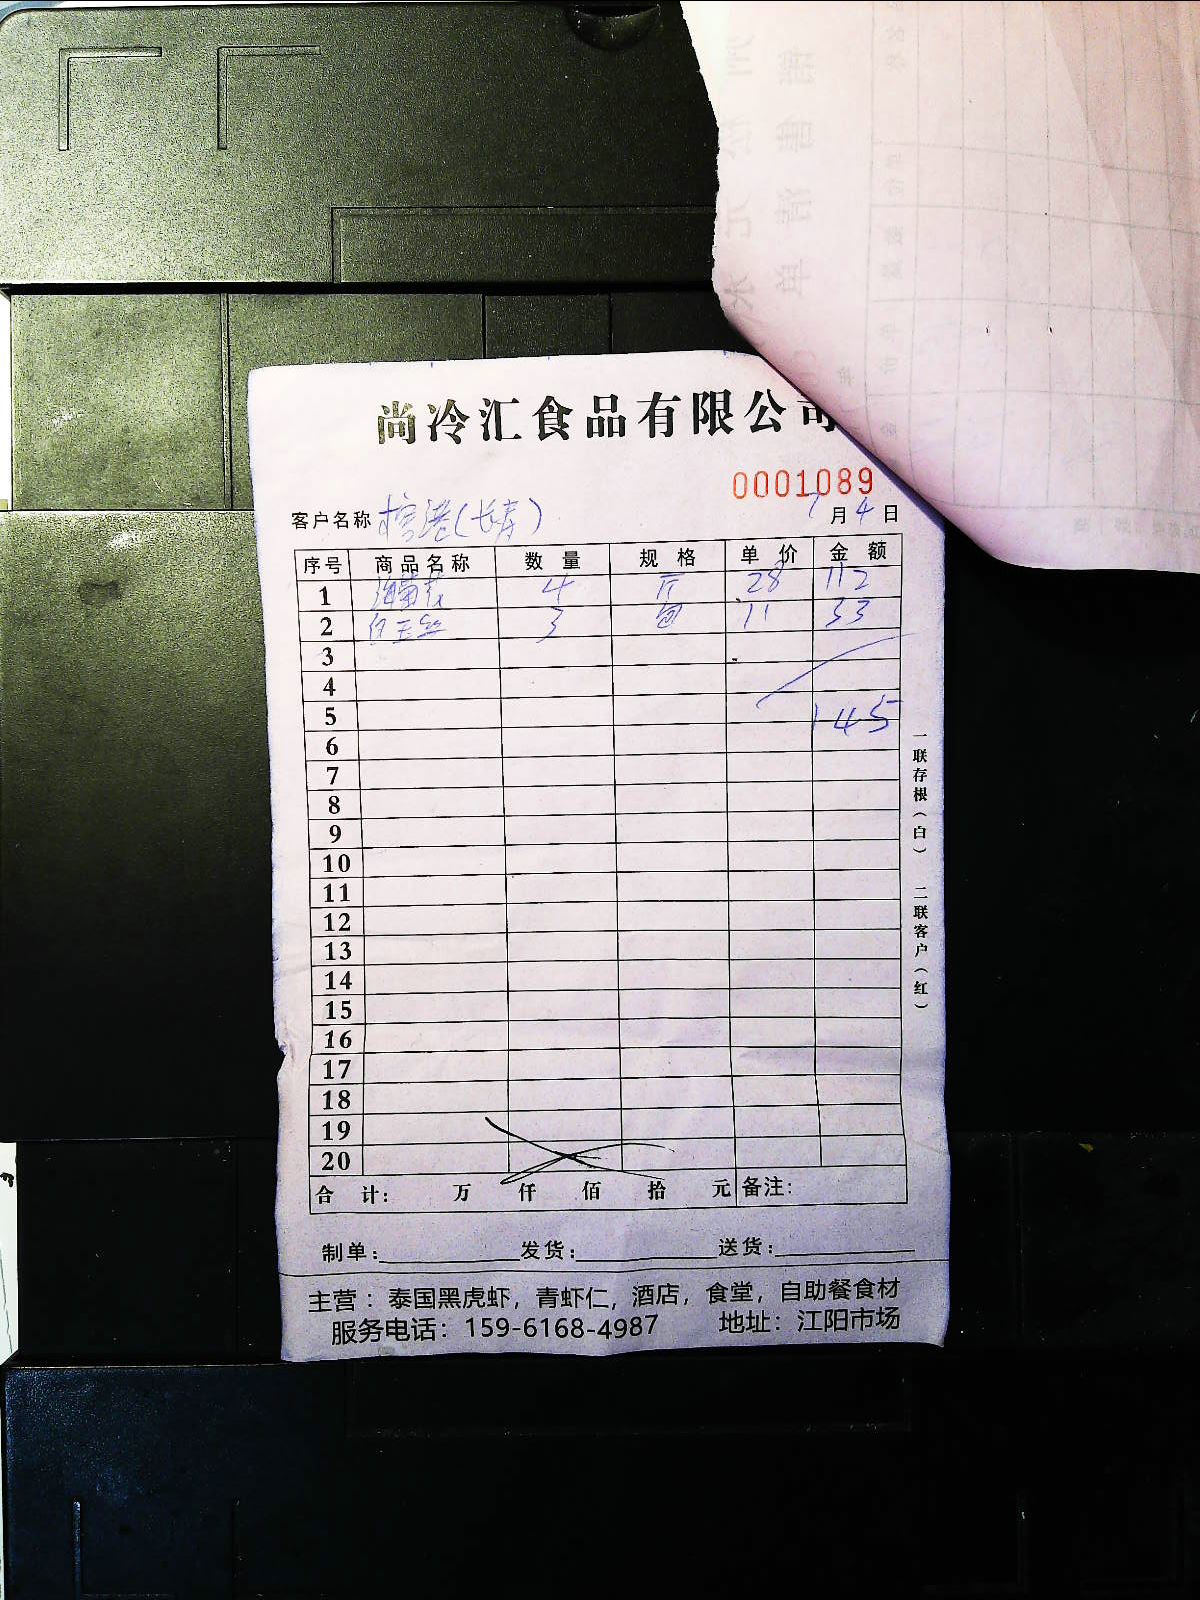 尚冷汇食品有限公司
0001089
客户名称 (长寿) 7月4日
序号 商品名称 数量 规格 单价 金额
1 海葡萄 4 斤 28 112
2 白玉丝 3 包 11 33
3
4
5 145
6
7
8
9
10
11
12
13
14
15
16
17
18
19
20
合计： 万 仟 佰 拾 元 备注：
制单： 发货： 送货：
主营：泰国黑虎虾，青虾仁，酒店，食堂，自助餐食材
服务电话：159-6168-4987 地址：江阳市场
一联存根（白） 二联客户（红）